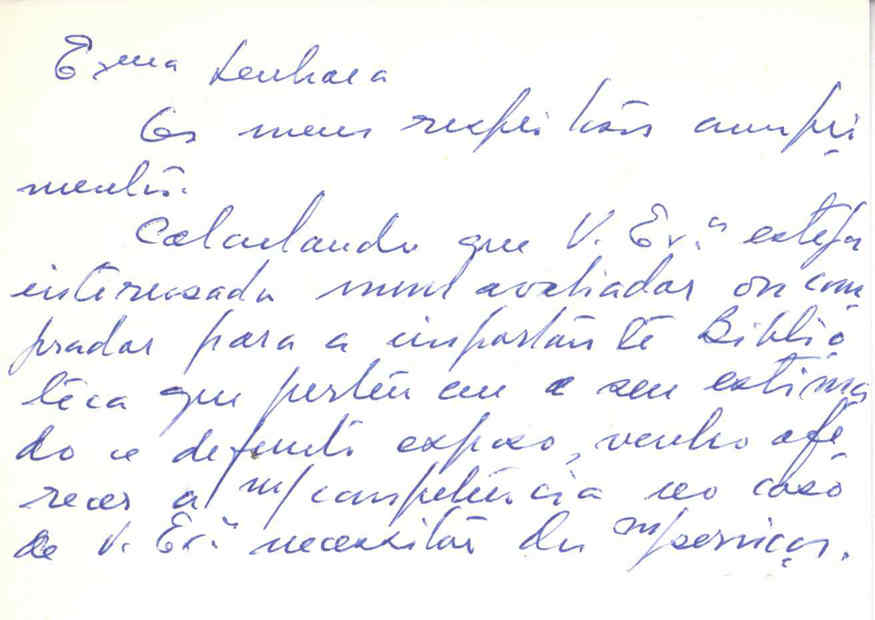 Exma Senhora
Os meus respeitosos cumpri
mentos.
Calculando que V. Ex.ª esteja
interessada num avaliador ou com
prador para a importante Biblio
teca que pertenceu a seu estima
do e defunto esposo, venho ofe
recer a m/ competência no caso
de V. Ex.ª necessitar dos m/ serviços.